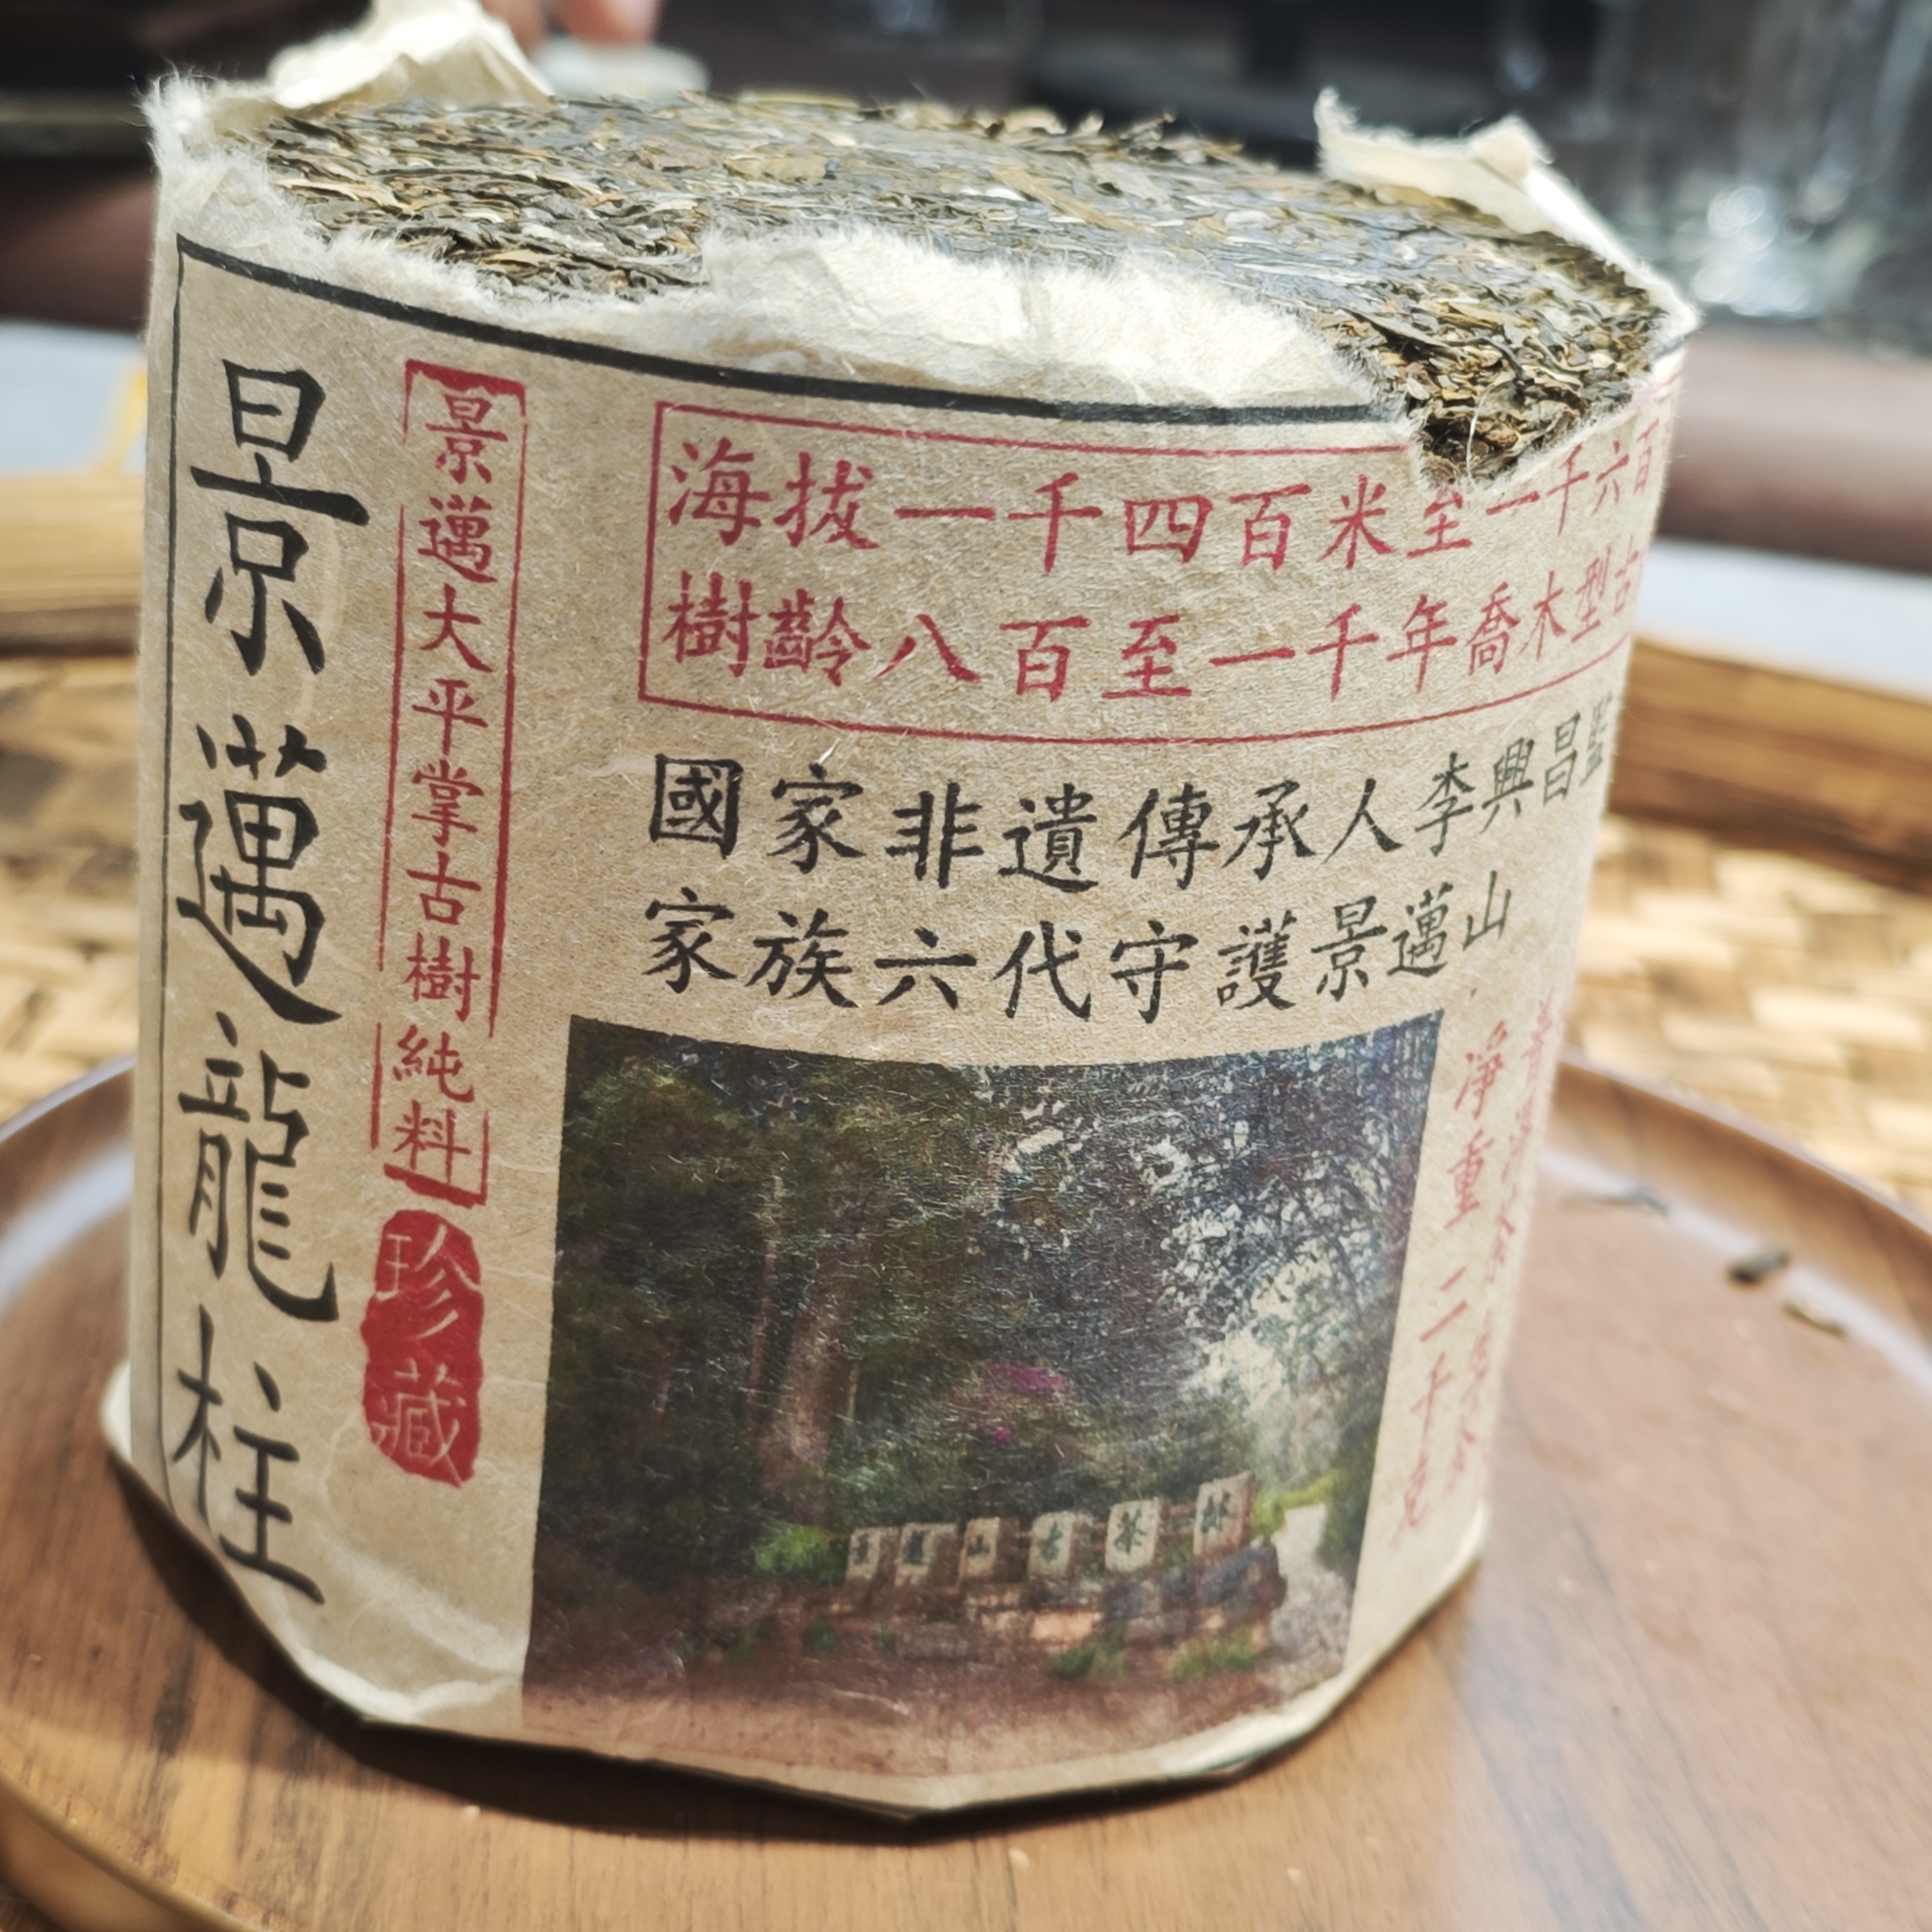 景邁龍柱
景邁大平掌古樹純料
珍藏
海拔一千四百米至一千六百
樹齡八百至一千年喬木型古
國家非遺傳承人李興昌監
家族六代守護景邁山
淨重二千克
景邁山古茶林